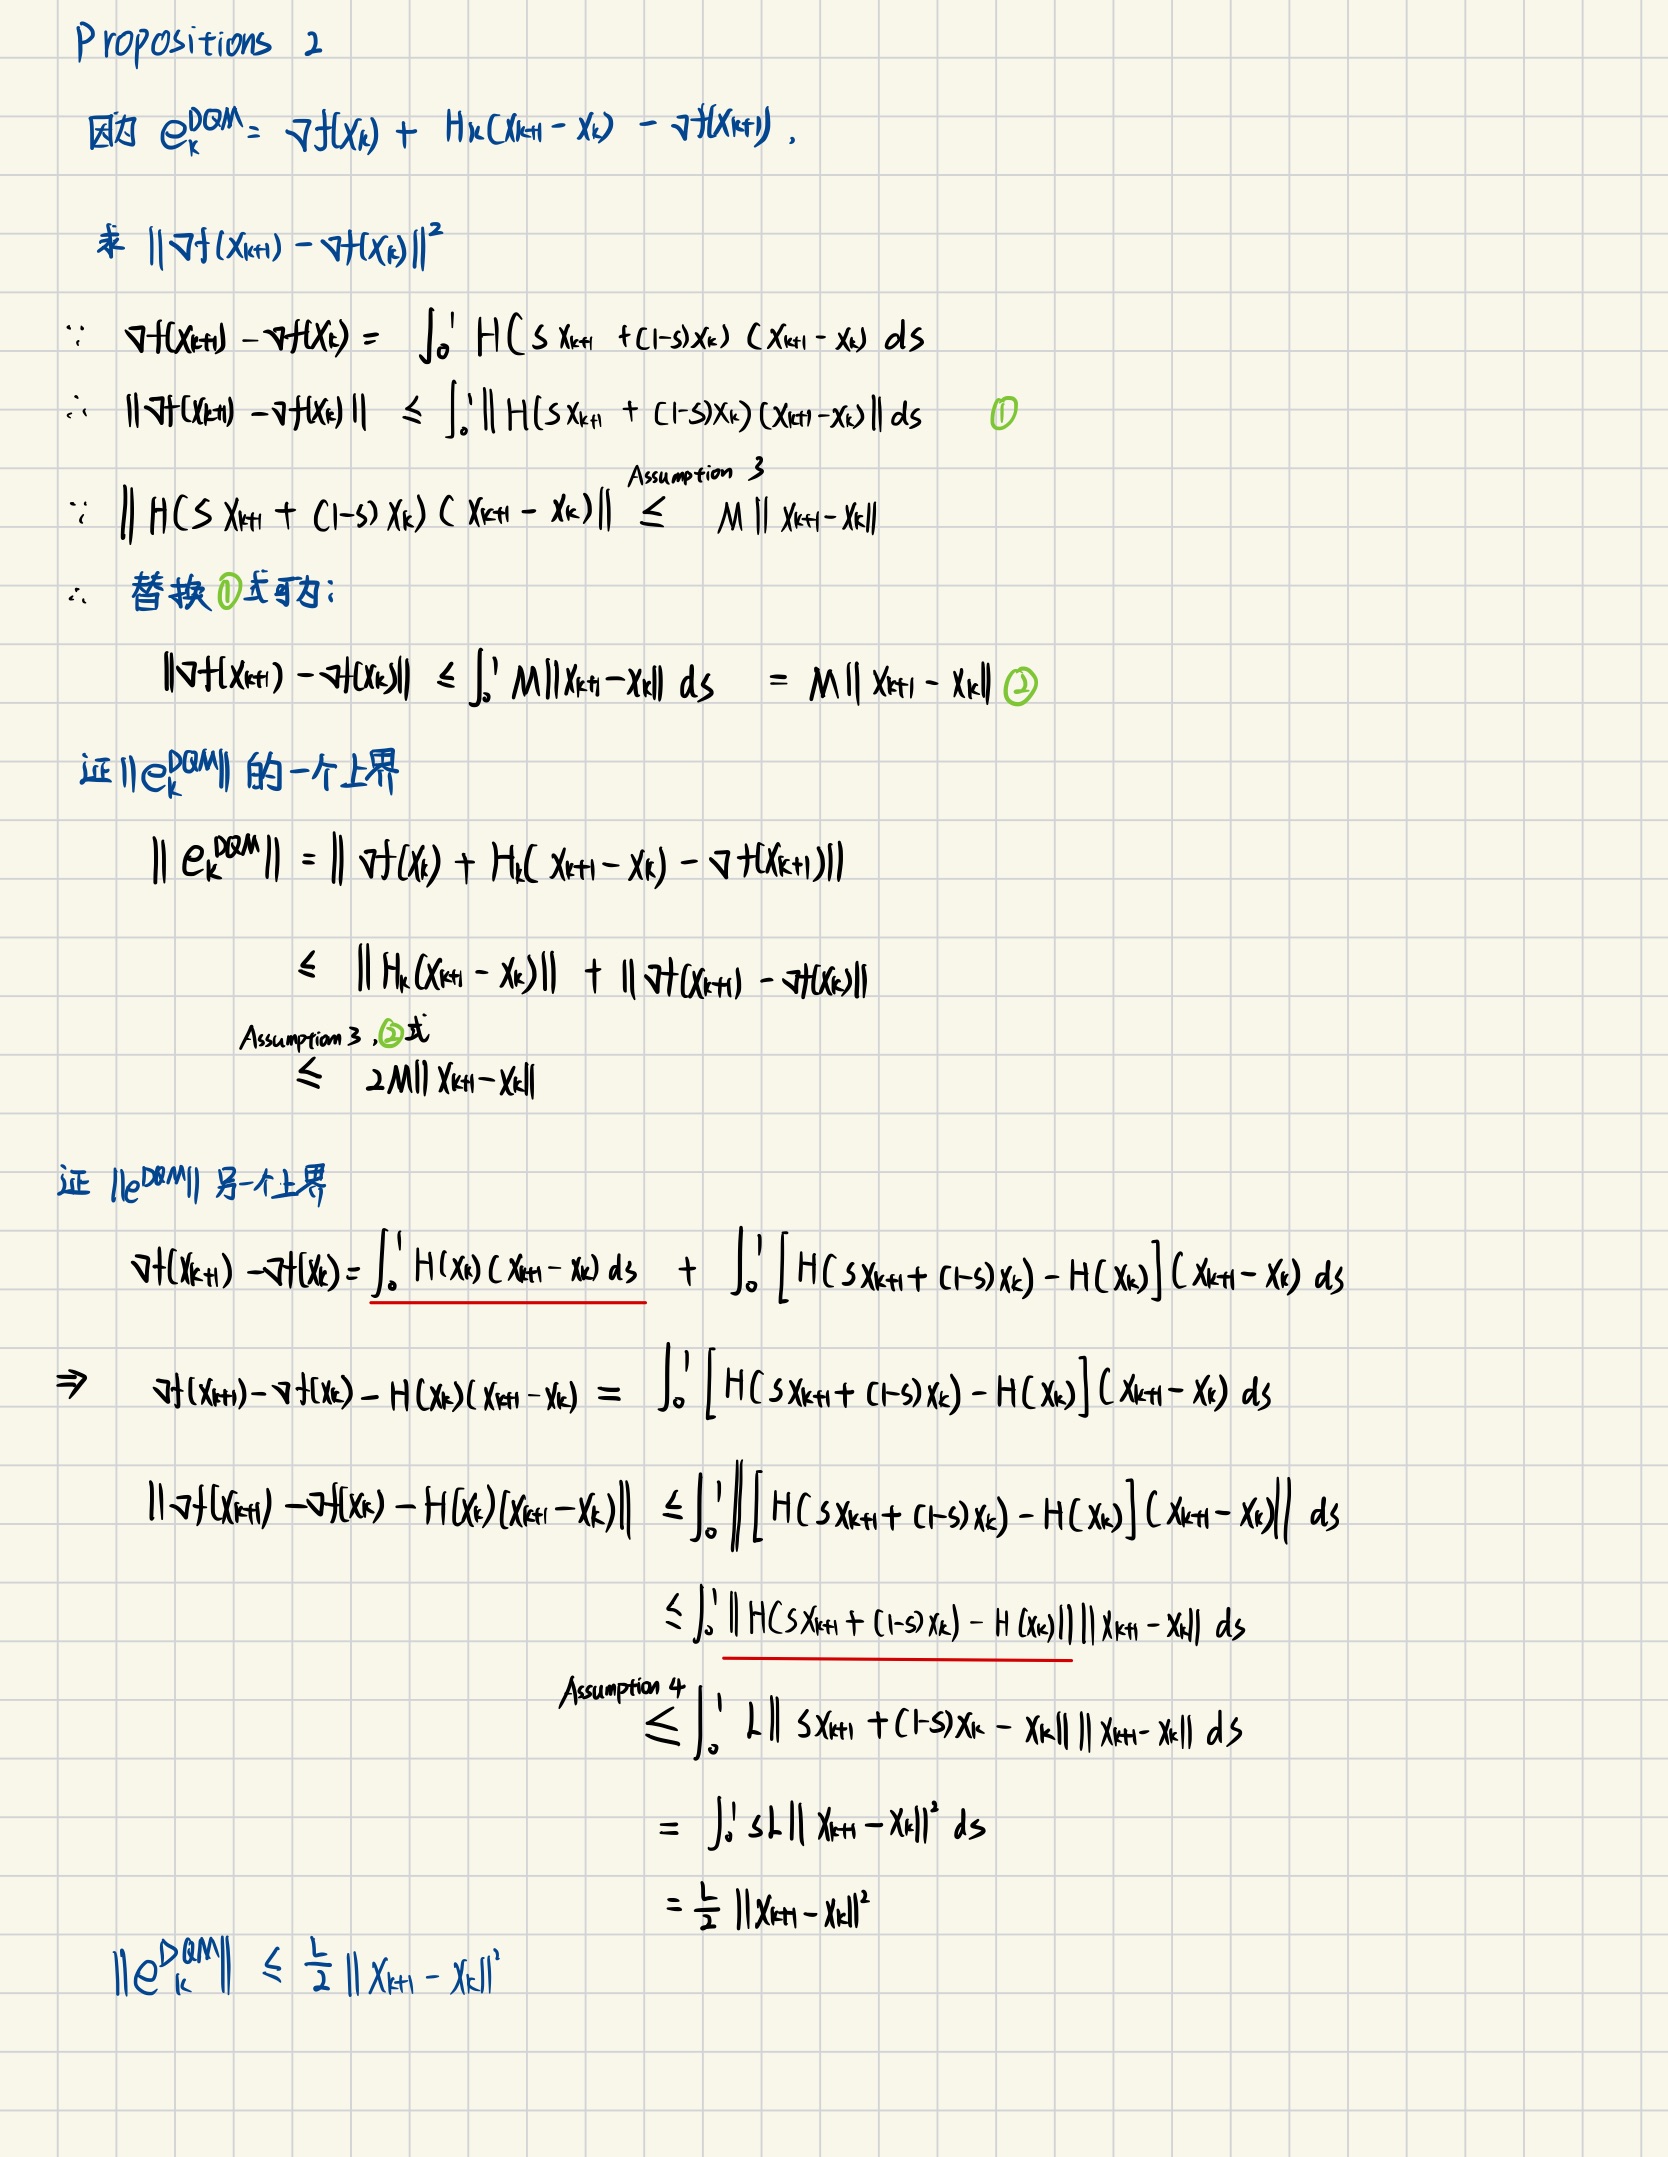 Propositions 2
因为 e_k^{DQM} = ∇f(x_k) + H_k(x_{k+1} - x_k) - ∇f(x_{k+1}).
求 ||∇f(x_{k+1}) - ∇f(x_k)||^2
∵ ∇f(x_{k+1}) - ∇f(x_k) = ∫_0^1 H(s x_{k+1} + (1-s)x_k) (x_{k+1} - x_k) ds
∴ ||∇f(x_{k+1}) - ∇f(x_k)|| ≤ ∫_0^1 ||H(s x_{k+1} + (1-s)x_k)(x_{k+1} - x_k)|| ds ①
Assumption 3
∵ ||H(s x_{k+1} + (1-s)x_k)(x_{k+1} - x_k)|| ≤ M||x_{k+1} - x_k||
∴ 替换①式可为:
||∇f(x_{k+1}) - ∇f(x_k)|| ≤ ∫_0^1 M||x_{k+1} - x_k|| ds = M||x_{k+1} - x_k|| ②
证||e_k^{DQM}|| 的一个上界
||e_k^{DQM}|| = ||∇f(x_k) + H_k(x_{k+1} - x_k) - ∇f(x_{k+1})||
≤ ||H_k(x_{k+1} - x_k)|| + ||∇f(x_{k+1}) - ∇f(x_k)||
Assumption 3, ②式
≤ 2M||x_{k+1} - x_k||
证 ||e^{DQM}|| 另一个上界
∇f(x_{k+1}) - ∇f(x_k) = ∫_0^1 H(x_k)(x_{k+1} - x_k) ds + ∫_0^1 [H(s x_{k+1} + (1-s)x_k) - H(x_k)](x_{k+1} - x_k) ds
⇒ ∇f(x_{k+1}) - ∇f(x_k) - H(x_k)(x_{k+1} - x_k) = ∫_0^1 [H(s x_{k+1} + (1-s)x_k) - H(x_k)](x_{k+1} - x_k) ds
||∇f(x_{k+1}) - ∇f(x_k) - H(x_k)(x_{k+1} - x_k)|| ≤ ∫_0^1 ||[H(s x_{k+1} + (1-s)x_k) - H(x_k)](x_{k+1} - x_k)|| ds
≤ ∫_0^1 ||H(s x_{k+1} + (1-s)x_k) - H(x_k)|| ||x_{k+1} - x_k|| ds
Assumption 4
≤ ∫_0^1 L||s x_{k+1} + (1-s)x_k - x_k|| ||x_{k+1} - x_k|| ds
= ∫_0^1 sL||x_{k+1} - x_k||^2 ds
= L/2 ||x_{k+1} - x_k||^2
||e_k^{DQM}|| ≤ L/2 ||x_{k+1} - x_k||^2